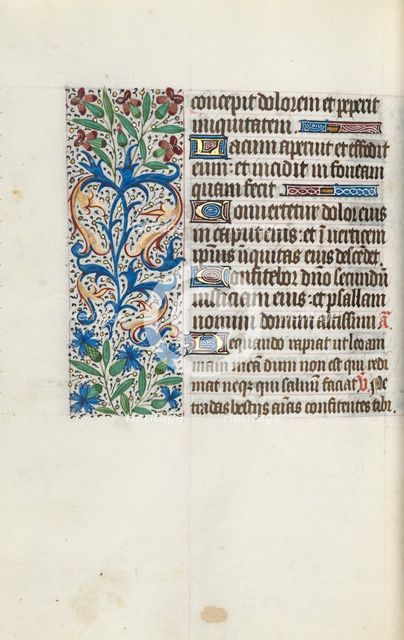 concepit dolorem et peperit
iniquitatem
Lacum aperuit et effodit
eum: et incidit in foueam
quam fecit
Conuertetur dolor eius
in caput eius: et ī uerticem
ipius īiquitas eius descēdet
Confitebor dn̄o secundū
iusticiam eius: et psallam
nomini domini altissimi A
Nequando rapiat ut leo am
mam meā dum non est qui redi
mat neq; qui saluū faciat V Ne
tradas bestijs aīas confitentes tibi.
Heritage Heritage